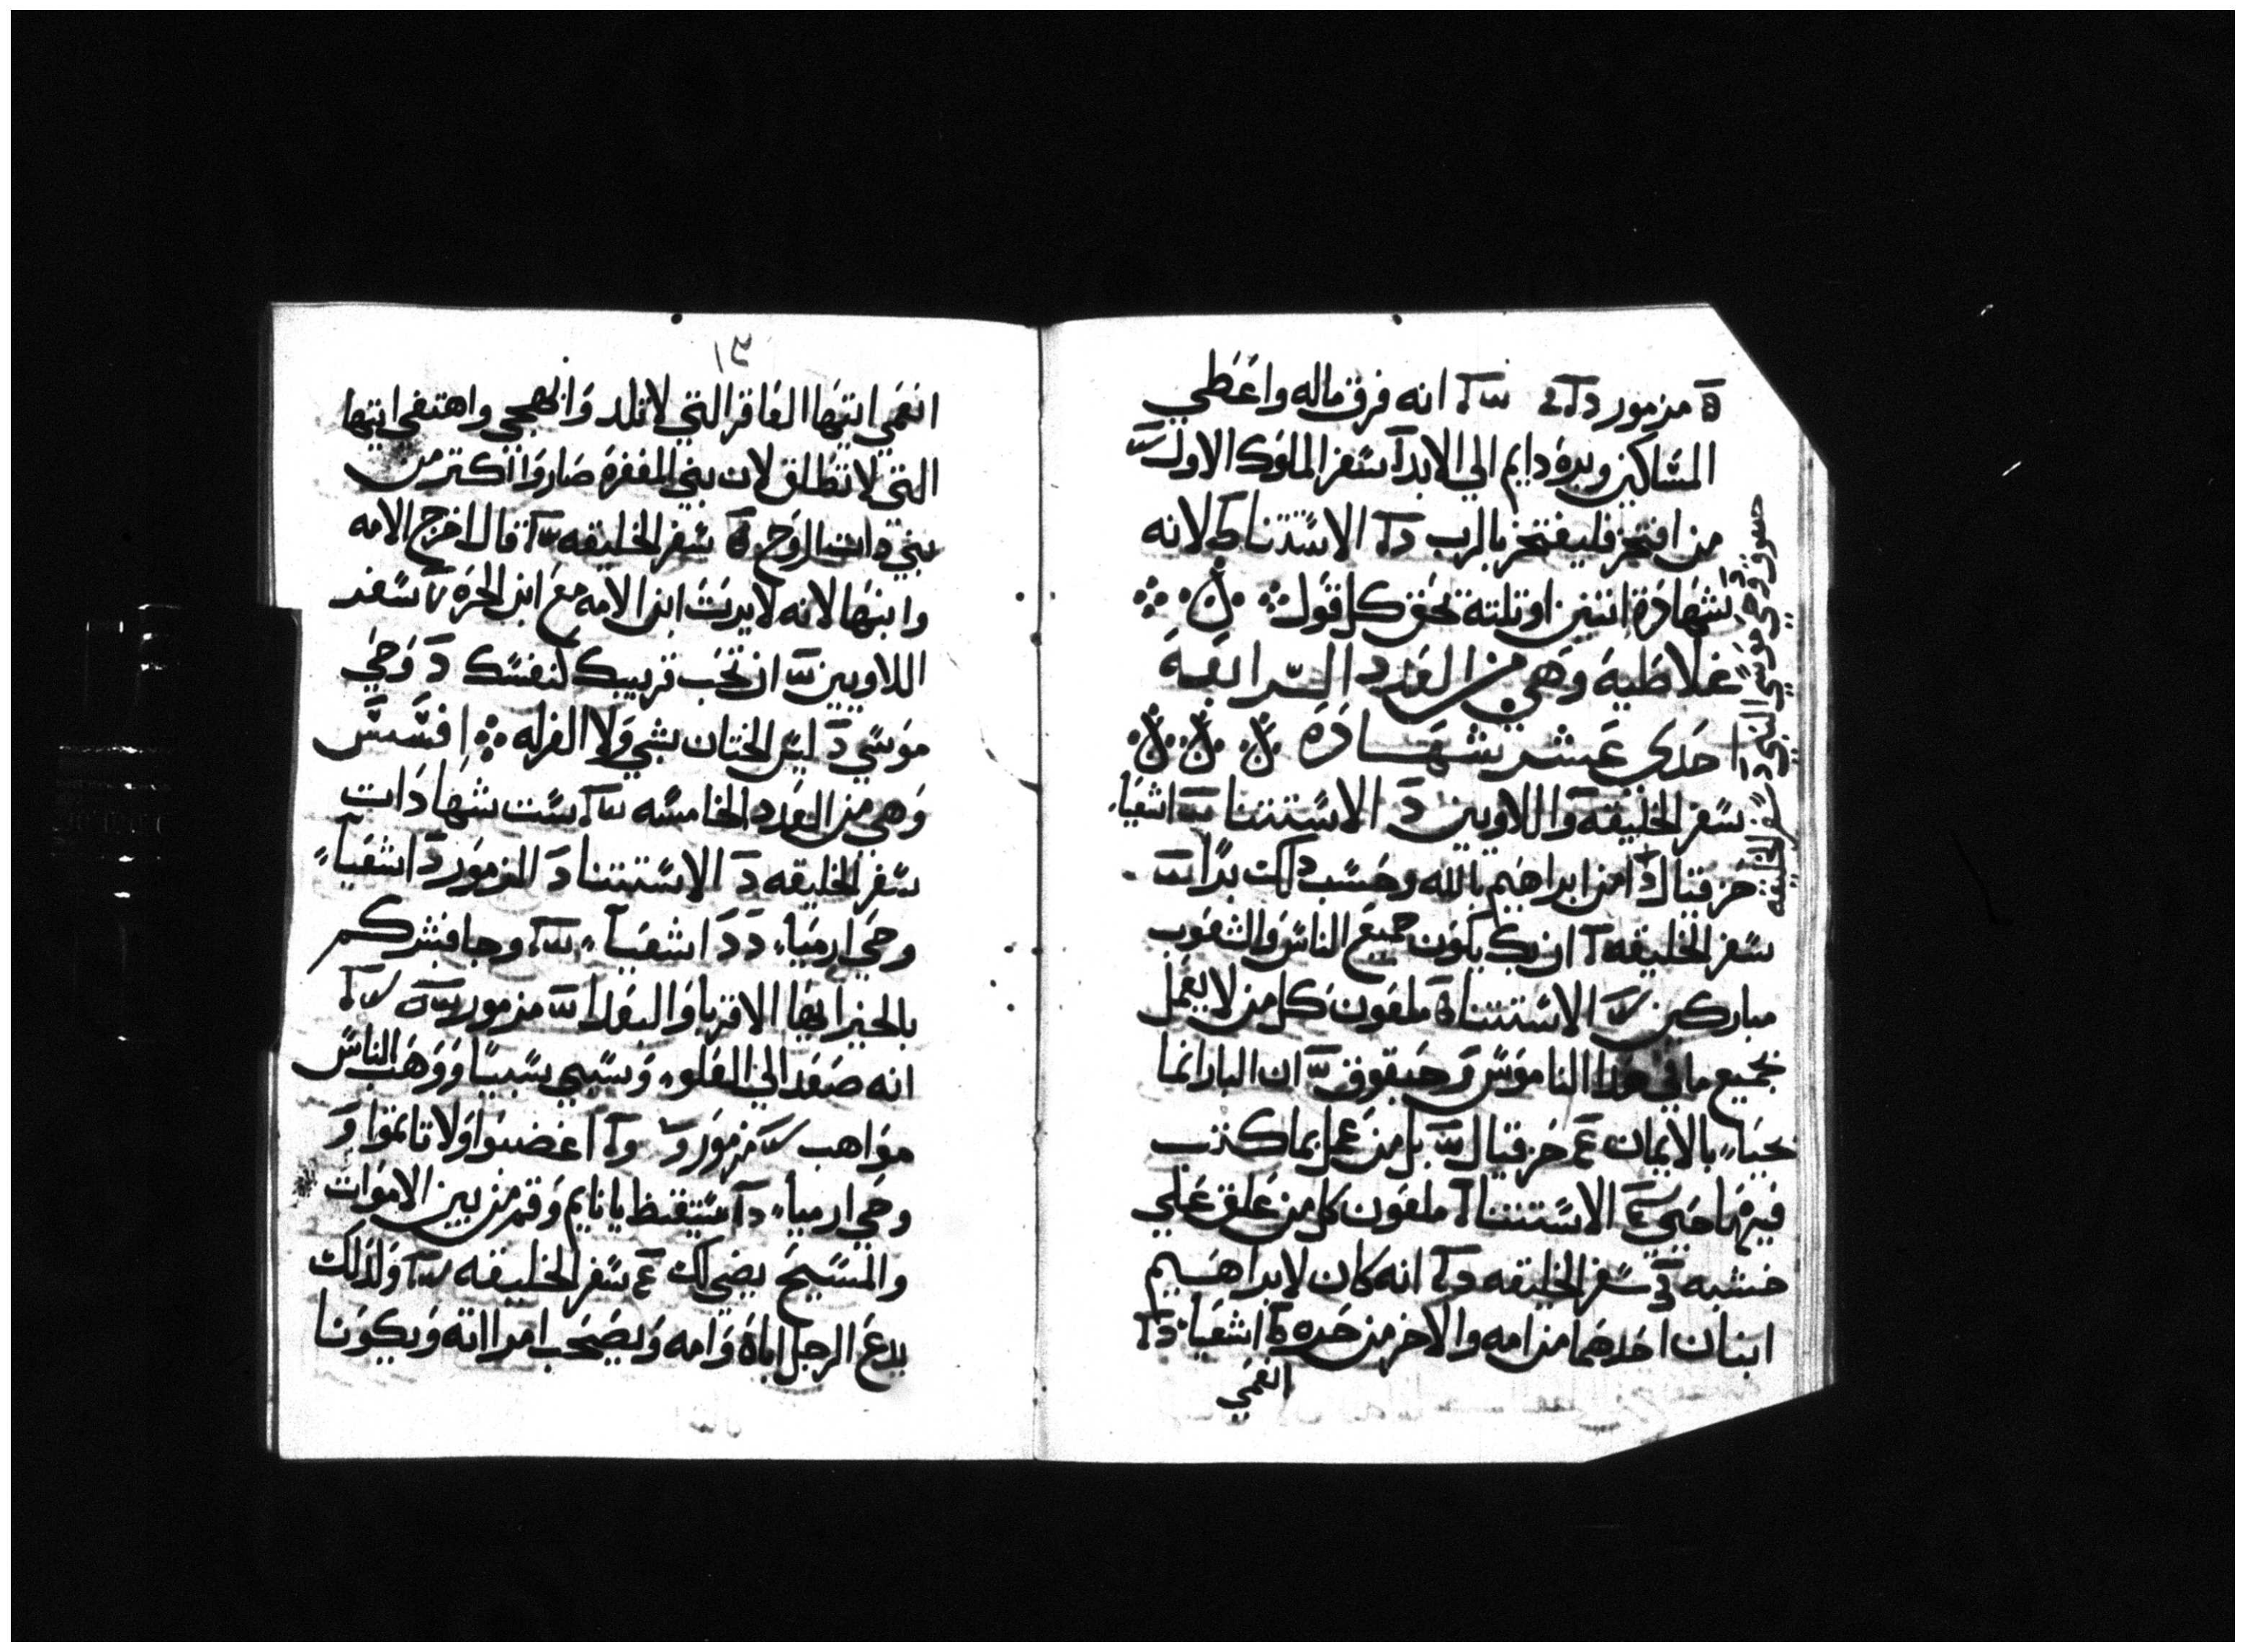 مزمور انه فرق ماله واعطي
المساكين وبره دايم الي الابد سفر الملوك الاول
من افتخر فليفتخر بالرب الاستتنا لانه
بشهادة اتنين او تلتة تحق كل قول
غلاطية وهي من العدد الرابعة
احدي عشر شهادة
سفر الخليقه واللاويين الاستتنا اشعيا
حزقيال امن ابراهيم بالله وحسب دلك برا
سفر الخليقه ان بك يكون جميع الناس والشعوب
مباركين الاستتنا ملعون كل من لا يعمل
بجميع ما في هدا الناموس حبقوق ان البار انما
يحيا بالايمان حزقيال بل من عمل بما كتب
فيها حيي الاستتنا ملعون كل من علق علي
خشبه سفر الخليقه انه كان لابراهيم
ابنان احدهما من امه والاخر من حره اشعيا
انعمي
حبقوق وحي موسي النبي سفر الخليقه
١٣
انعمي ايتها العاقر التي لا تلد وابهجي واهتفي ايتها
التي لا تطلق لان بني المقفرة صاروا اكتر من
بني دات الزوج سفر الخليقه قال اخرج الامه
وابنها لانه لا يرت ابن الامه مع ابن الحره سفر
اللاويين ان تحب قريبك كنفسك وحي
موسي ليس الختان بشي ولا الغرله افسس
وهي من العدد الخامسه ست شهادات
سفر الخليقه الاستتنا المزمور اشعيا
وحي ارميا اشعيا وجا فبشركم
بالخير ايها الاقربا والبعدا مزمور
انه صعد الي العلو وسبي سبيا ووهب الناس
مواهب مزمور اغضبوا ولا تاتموا
وحي ارميا استيقظ يا نايم وقم من بين الاموات
والمسيح يضي لك سفر الخليقه ولدلك
يدع الرجل اباه وامه ويصحب امراته ويكونا